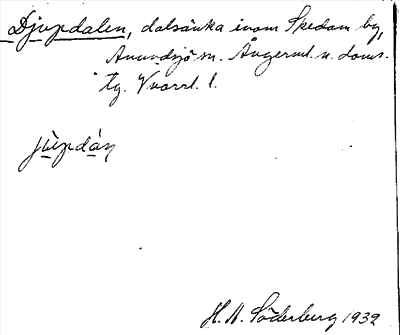 Djupdalen, dalsänka inom Skedom by,
Anundsjö sn. Ångerml. n. doms.
tg. Vnorrl. l.
jùpdáɳ
H. N. Söderberg 1932